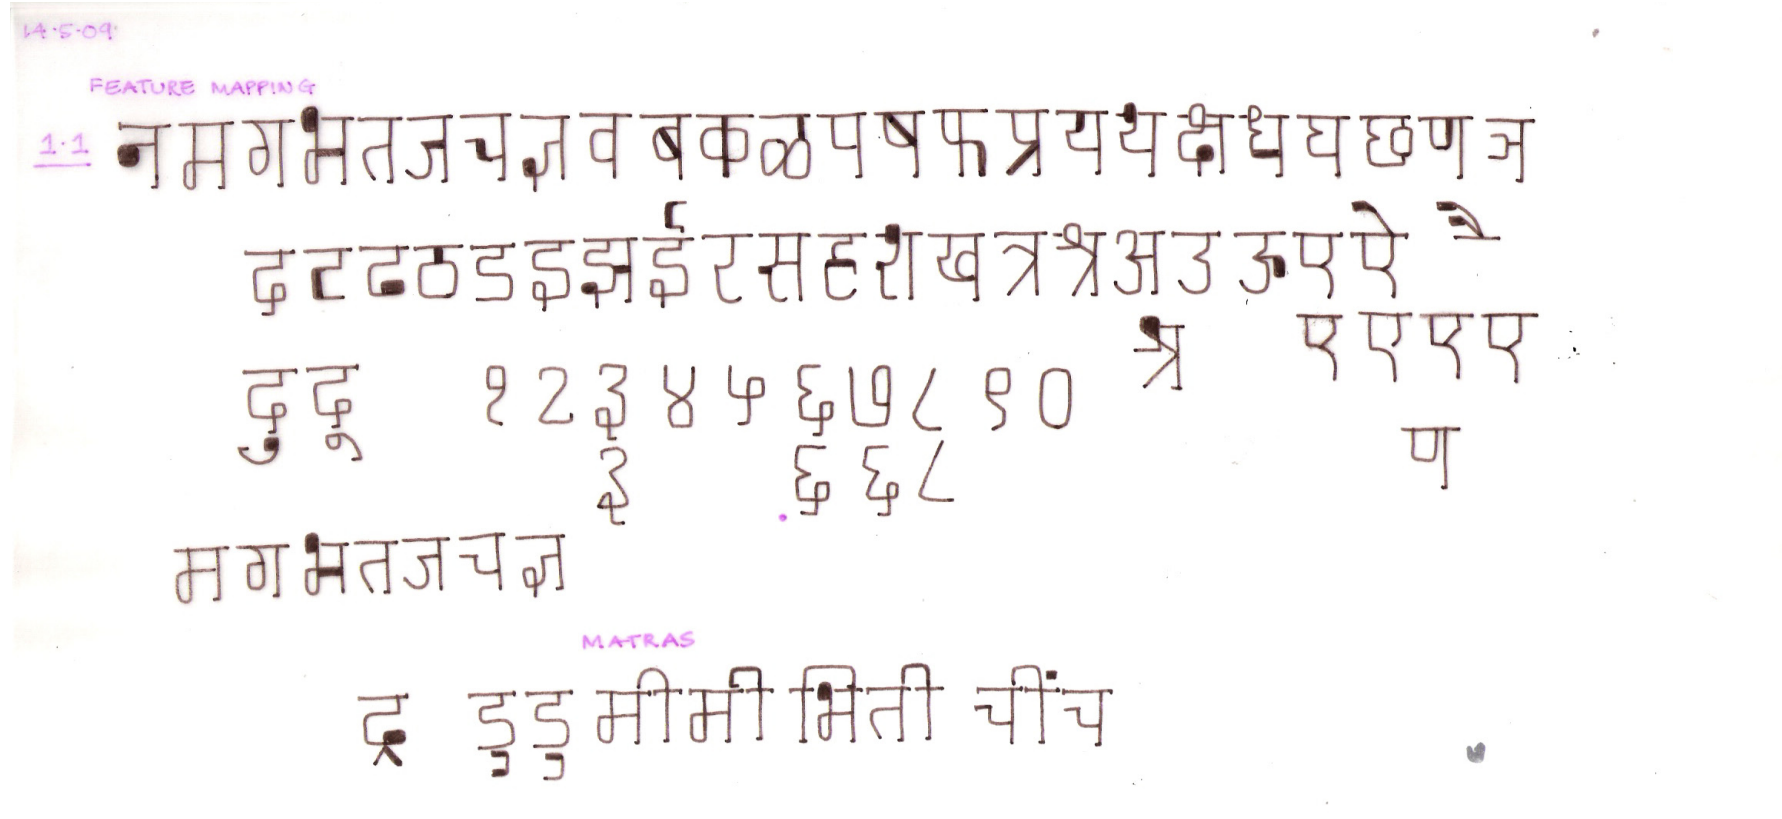 14.5.09
FEATURE MAPPING
1.1 न म ग भ त ज च ज्ञ व ब क ळ प ष फ प्र य थ क्ष ध घ छ ण ञ
द ट ढ ठ ड इ झ ई र स ह श ख त्र श्र अ उ ऊ ए ऐ
श्र ए ए ए ए
दु दू १ २ ३ ४ ५ ६ ७ ८ ९ ०
ण
३ ६ ६ ८
म ग भ त ज च ज्ञ
MATRAS
दृ डु डु मी मी भि ती चींच